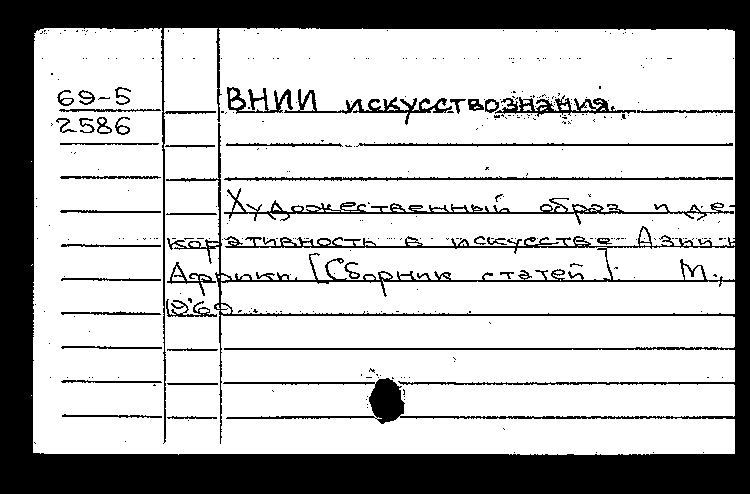 69-5
2586
ВНИИ искусствознания.
Художественный образ и де-
коративность в искусстве Азии и
Африки. [Сборник статей]. М.,
1969.